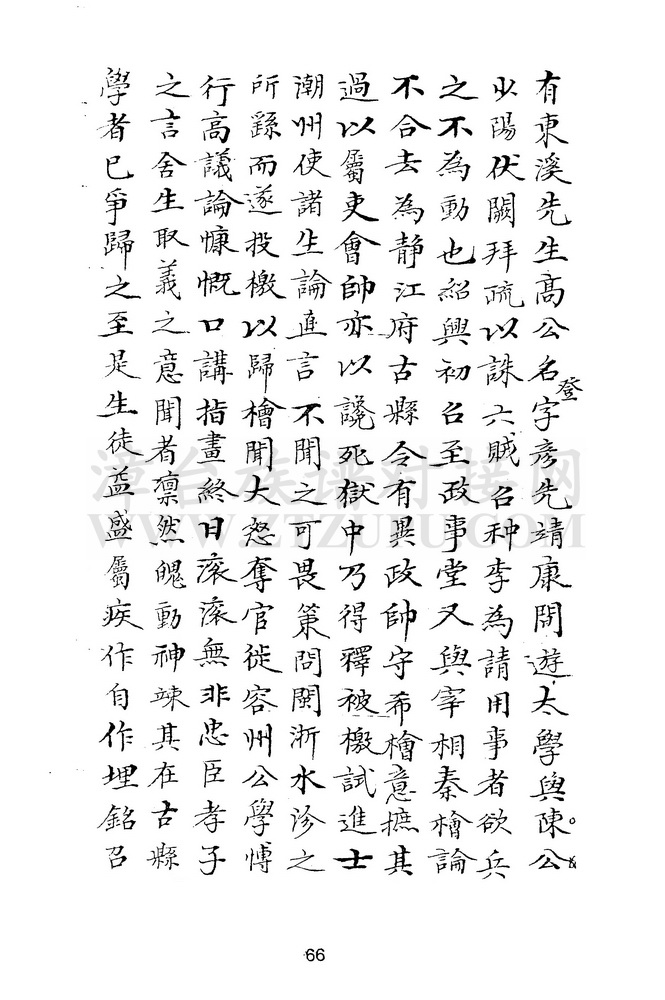 有東溪先生高公名登字彦先靖康間遊太學與陳公
少陽伏闕拜疏以誅六賊召种李為請用事者欲兵
之不為動也紹興初召至政事堂又與宰相秦檜論
不合去為静江府古縣令有異政帥守希檜意摭其
過以屬吏會帥亦以讒死獄中乃得釋被檄試進士
潮州使諸生論直言不聞之可畏策問閩浙水沴之
所繇而遂投檄以歸檜聞大怒奪官徙容州公學博
行高議論慷慨口講指畫終日滾滾無非忠臣孝子
之言舍生取義之意聞者凛然魄動神竦其在古縣
學者已爭歸之至是生徒益盛屬疾作自作埋銘召
WWW.ZTZUPU.COM
66